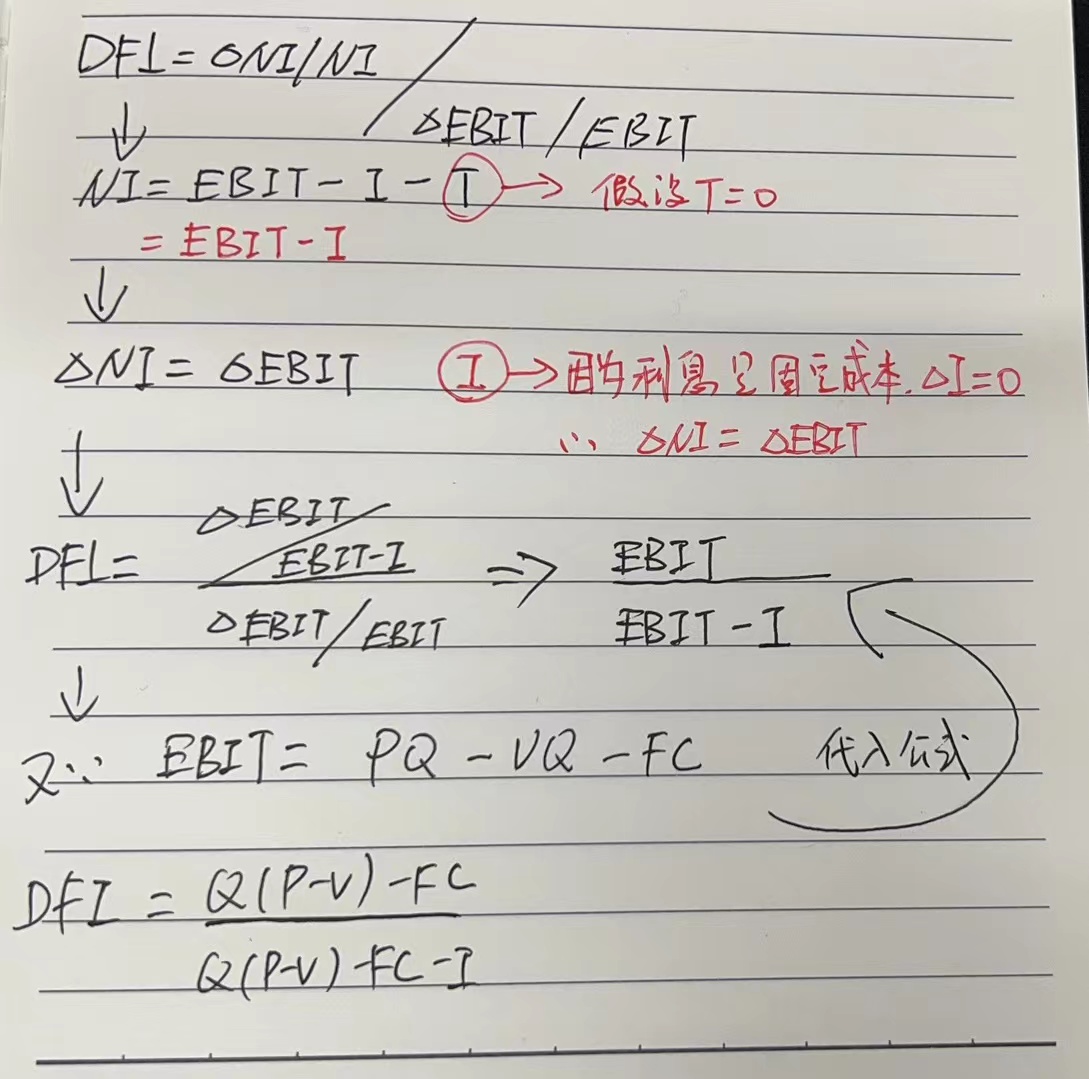 DFL = ΔNI/NI / ΔEBIT/EBIT
↓
NI = EBIT - I - T → 假设T=0
= EBIT - I
↓
ΔNI = ΔEBIT I → 因为利息是固定成本.ΔI=0
∴ ΔNI = ΔEBIT
↓
DFL = ΔEBIT/EBIT-I / ΔEBIT/EBIT ⇒ EBIT / EBIT - I
↓
又∵ EBIT = PQ - VQ - FC 代入公式
DFL = Q(P-V) - FC / Q(P-V) - FC - I